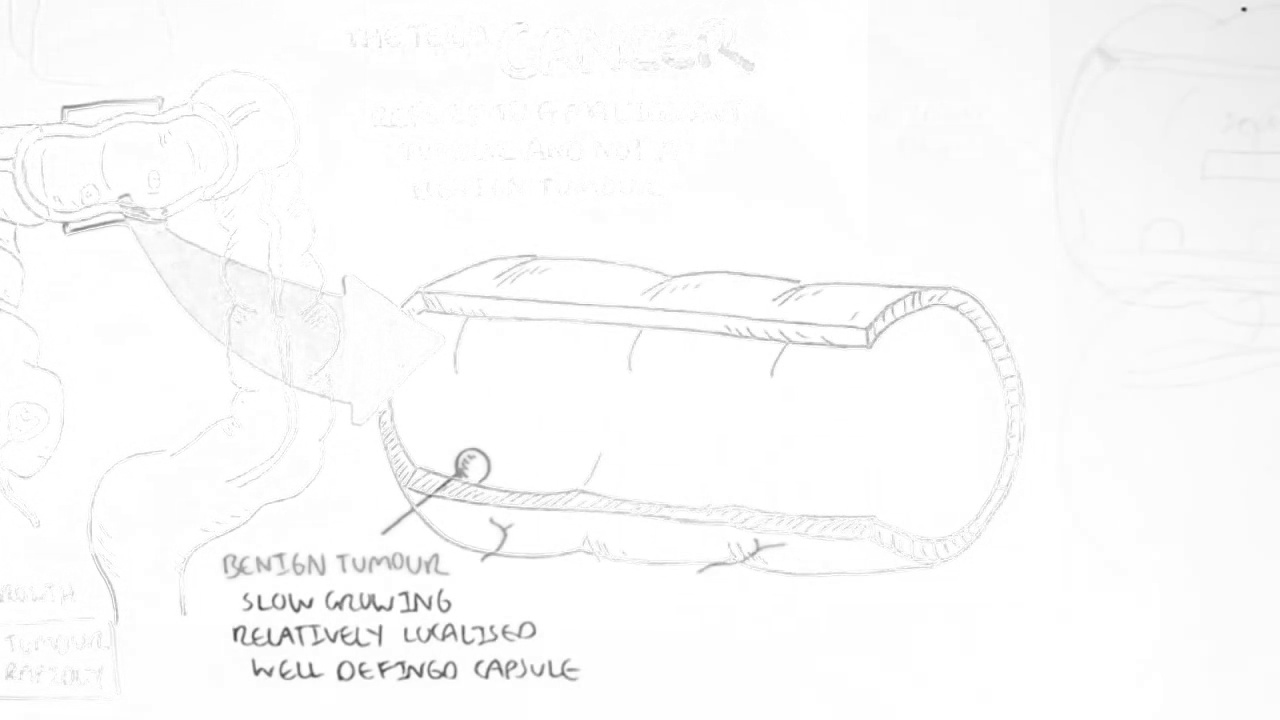 THE TERM CANCER
REFERS TO A MALIGNANT
TUMOUR AND NOT A
BENIGN TUMOUR
BENIGN TUMOUR
SLOW GROWING
RELATIVELY LOCALISED
WELL DEFINED CAPSULE
TUMOUR
RAPIDLY